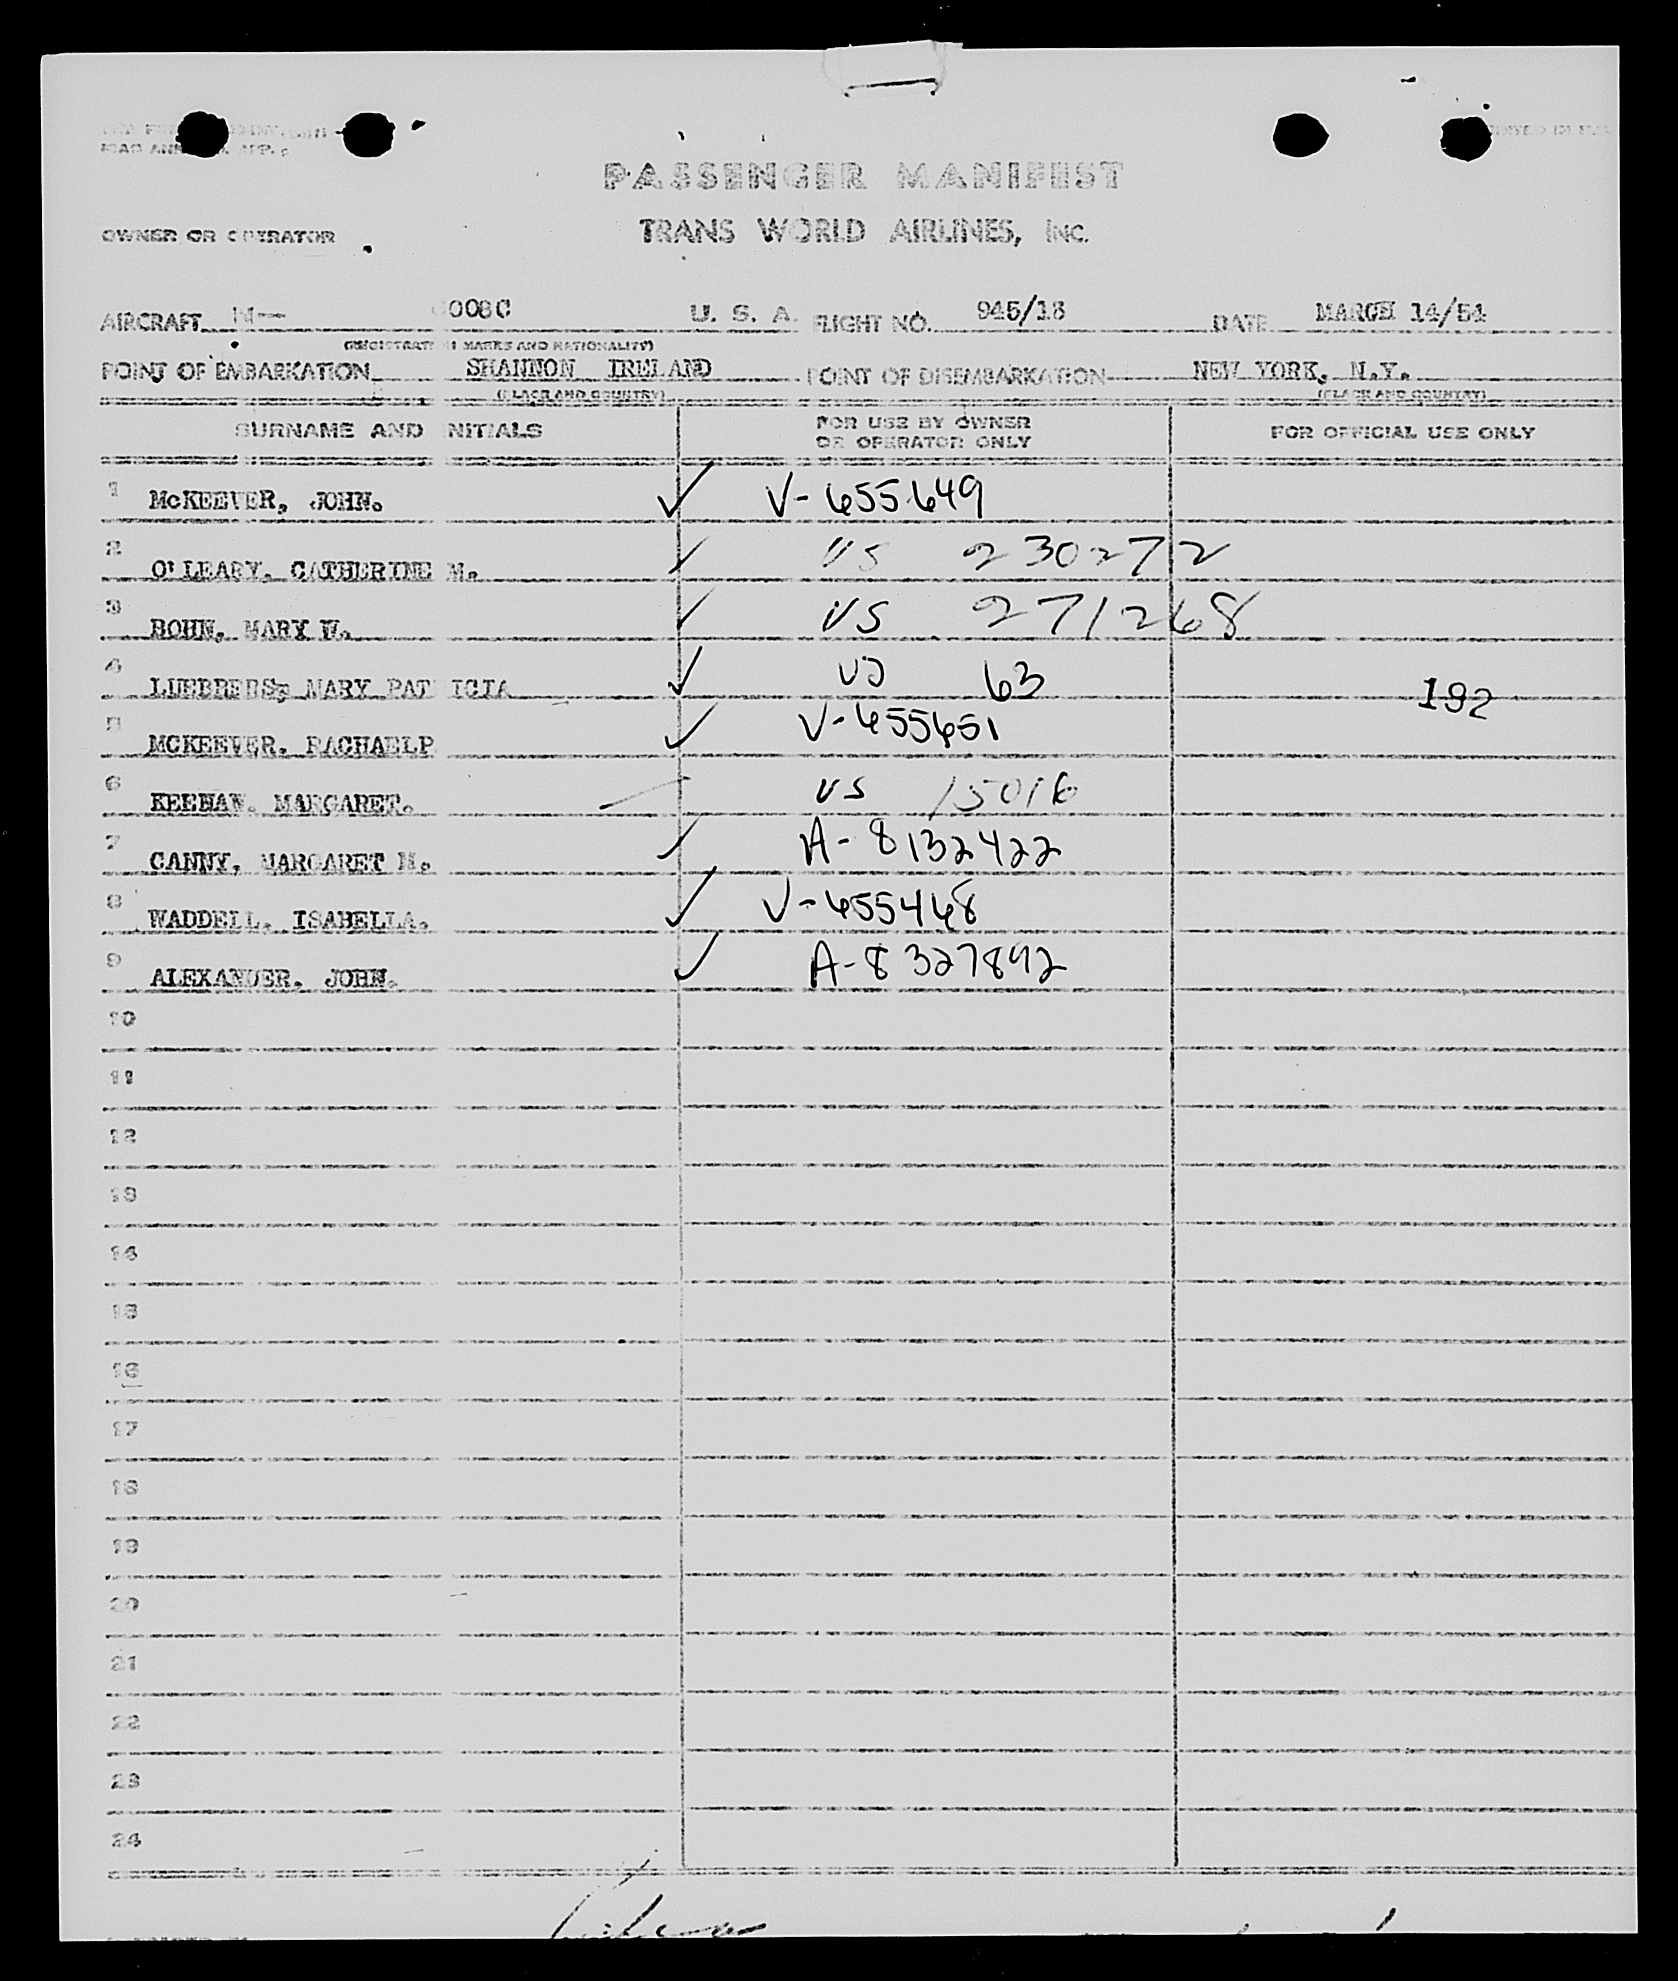 PASSENGER MANIFEST
OWNER OR OPERATOR TRANS WORLD AIRLINES, INC.
AIRCRAFT N— 6008C U. S. A. FLIGHT NO. 945/13 DATE MARCH 14/54
(REGISTRATION MARKS AND NATIONALITY)
POINT OF EMBARKATION SHANNON IRELAND POINT OF DISEMBARKATION NEW YORK, N.Y.
(PLACE AND COUNTRY) (PLACE AND COUNTRY)
SURNAME AND INITIALS FOR USE BY OWNER OR OPERATOR ONLY FOR OFFICIAL USE ONLY
1 McKEEVER, JOHN. ✓ V-655649
2 O'LEARY. CATHERINE M. ✓ US 230272
3 BOHN, MARY W. ✓ US 271268
4 MARY PATRICIA ✓ US 63 192
5 MCKEEVER. RACHAELP ✓ V-655651
6 KEENAN. MARGARET. US 15016
7 CANNY. MARGARET M. ✓ A-8132422
8 WADDELL. ISABELLA. ✓ V-655468
9 ALEXANDER. JOHN. ✓ A-8327892
10
11
12
13
14
15
16
17
18
19
20
21
22
23
24